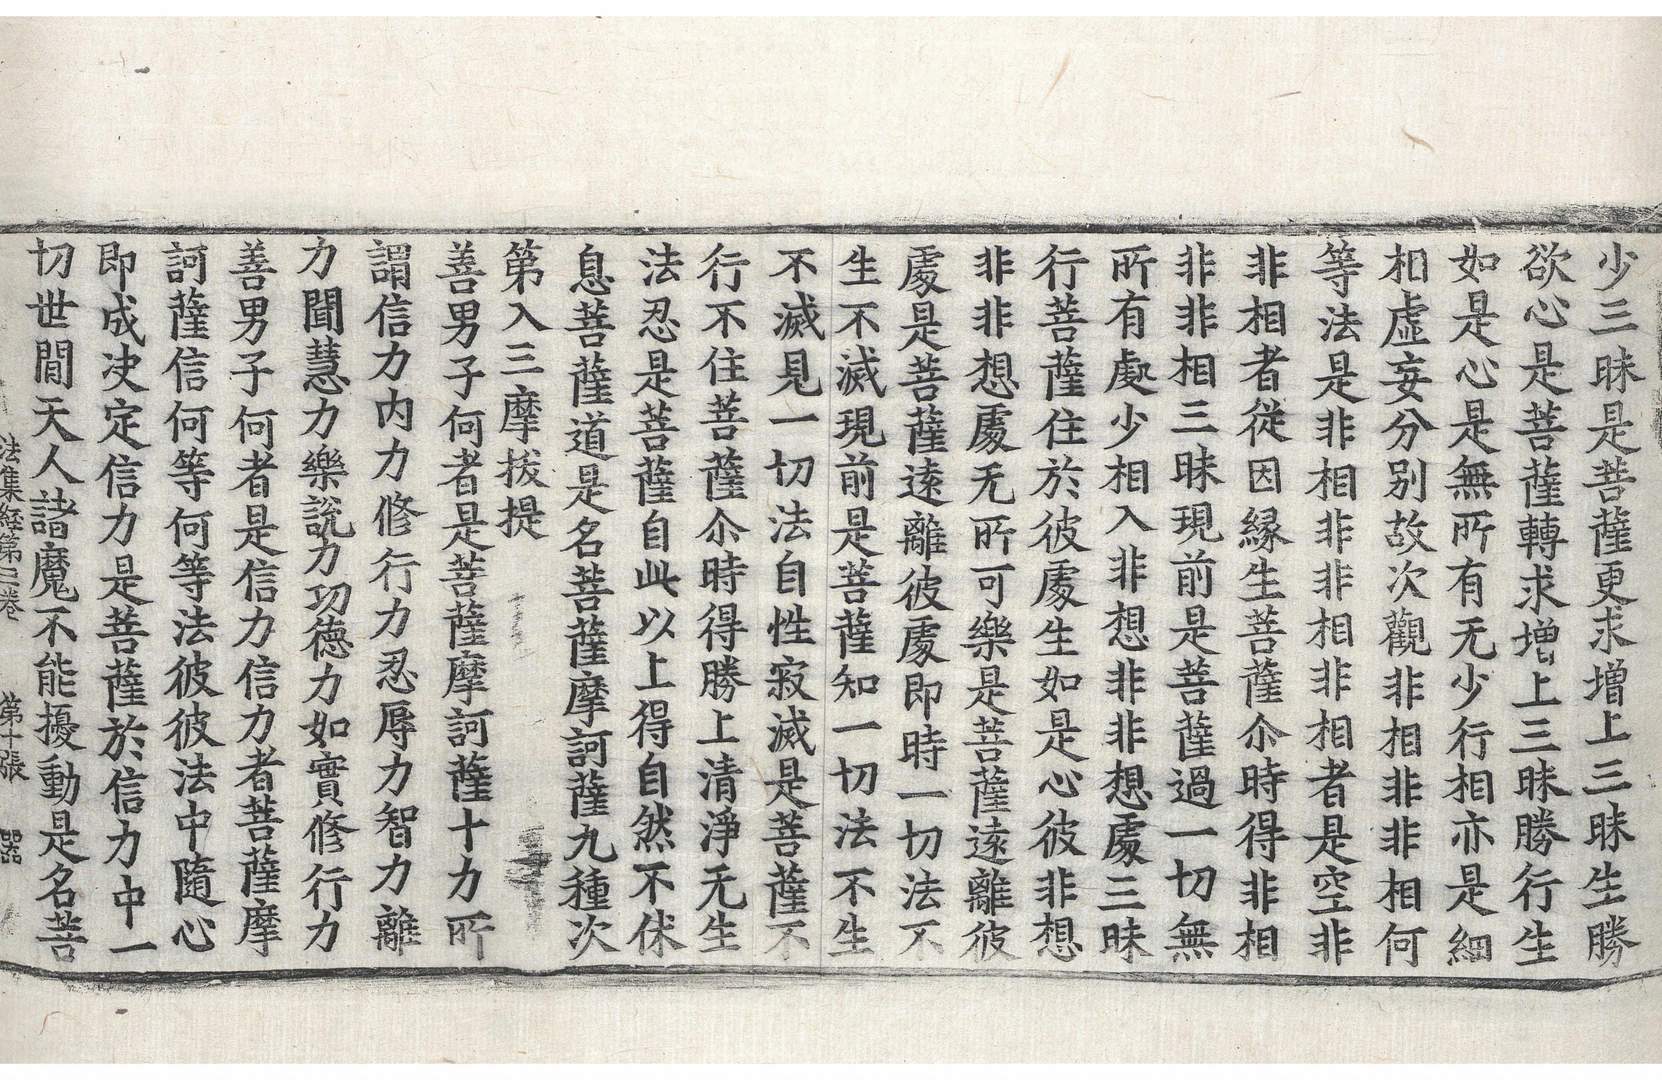 少三昧是菩薩更求增上三昧生勝
欲心是菩薩轉求增上三昧勝行生
如是心是無所有无少行相亦是細
相虛妄分别故次觀非相非非相何
等法是非相非非相非相者是空非
非相者從因緣生菩薩尒時得非相
非非相三昧現前是菩薩過一切無
所有處少相入非想非非想處三昧
行菩薩住於彼處生如是心彼非想
非非想處无所可樂是菩薩遠離彼
處是菩薩遠離彼處即時一切法不
生不滅現前是菩薩知一切法不生
不滅見一切法自性寂滅是菩薩不
行不住菩薩尒時得勝上清淨无生
法忍是菩薩自此以上得自然不休
息菩薩道是名菩薩摩訶薩九種次
第入三摩拔提
善男子何者是菩薩摩訶薩十力所
謂信力内力修行力忍辱力智力離
力聞慧力樂說力功德力如實修行力
善男子何者是信力信力者菩薩摩
訶薩信何等何等法彼彼法中隨心
即成决定信力是菩薩於信力中一
切世間天人諸魔不能擾動是名菩
法集經第三卷　第十張　器